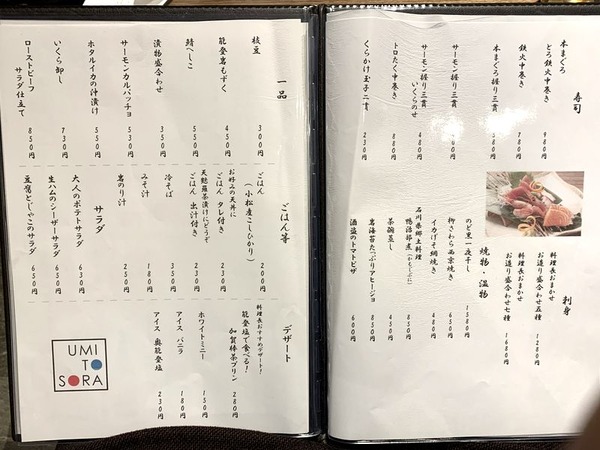 寿司
本まぐろ
とろ鉄火中巻き 980円
鉄火中巻き 780円
本まぐろ握り三貫 580円
サーモン握り三貫 480円
サーモン握り三貫 いくらのせ 680円
トロたく中巻き 880円
くらかけ玉子二貫 230円
刺身
料理長おまかせ
お造り盛合わせ五種 1280円
料理長おまかせ
お造り盛合わせ七種 1680円
焼物・温物
のど黒一夜干し 1580円
柳さわら西京焼き 650円
イカげそ網焼き 480円
石川県郷土料理
鴨治部煮(かもじぶに) 850円
茶碗蒸し 450円
岩海苔たっぷりアヒージョ 850円
酒盗のトマトピザ 600円
一品
枝豆 300円
能登岩もずく 450円
鯖へしこ 550円
漬物盛合わせ 350円
サーモンカルパッチョ 530円
ホタルイカの沖漬け 550円
いくら卸し 730円
ローストビーフ
サラダ仕立て 850円
ごはん等
ごはん
(小松産こしひかり) 200円
お好みの天丼に
ごはん タレ付き 230円
天麩羅茶漬けにどうぞ
ごはん 出汁付き 230円
冷そば 350円
みそ汁 180円
岩のり汁 250円
サラダ
大人のポテトサラダ 630円
生ハムのシーザーサラダ 650円
豆腐とじゃこのサラダ 650円
デザート
料理長おすすめデザート!
能登塩で食べる!
加賀棒茶プリン 280円
ホワイトミニー 150円
アイス バニラ 180円
アイス 奥能登塩 230円
UMI
TO
SORA